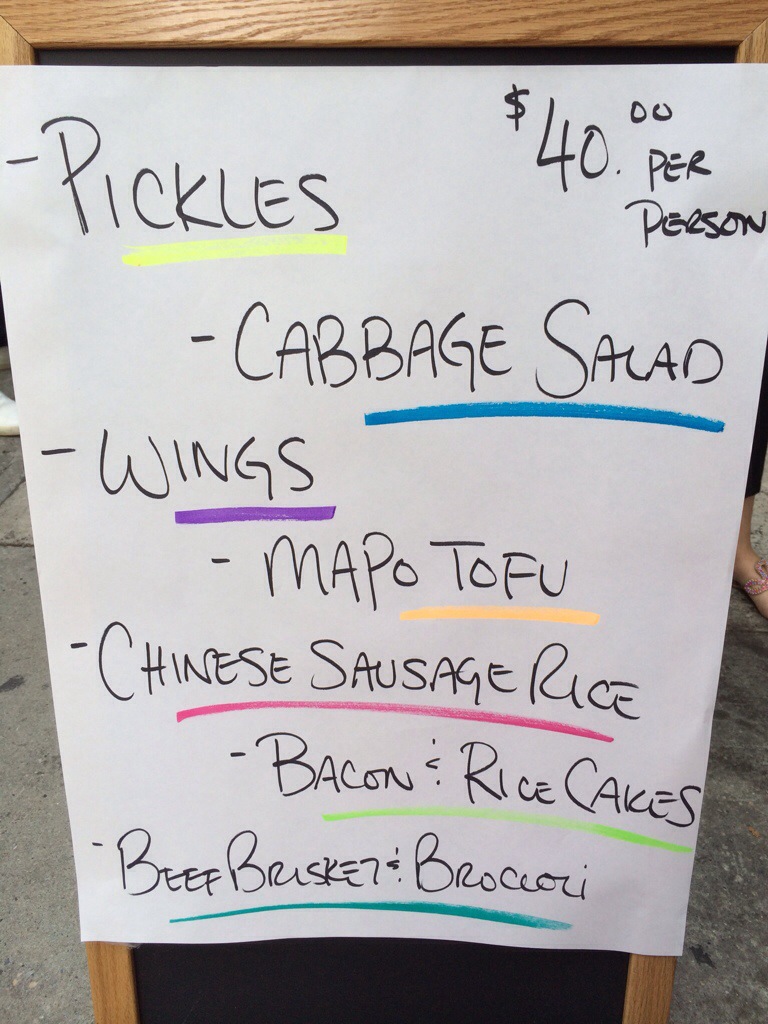 - PICKLES
$40.00 PER
PERSON
- CABBAGE SALAD
- WINGS
- MAPO TOFU
- CHINESE SAUSAGE RICE
- BACON & RICE CAKES
- BEEF BRISKET & BROCCOLI